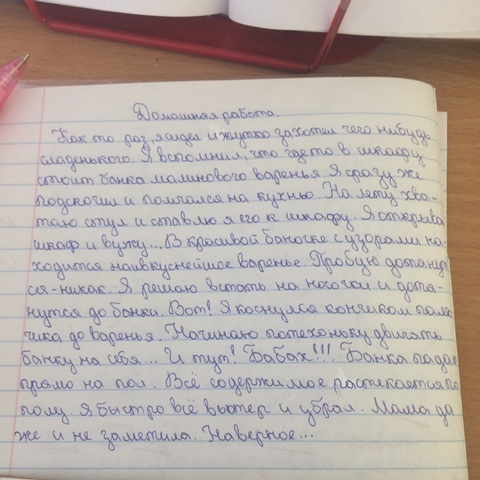 Домашная работа.
Как то раз, я сидел и жутко захотел чего нибудь
сладенького. Я вспомнил, что где то в шкафу
стоит банка малинового варенья. Я сразу же
подскочил и помчался на кухню. На лету хва-
таю стул и ставлю я его к шкафу. Я открыва
шкаф и вижу... В красивой баночке с узорами на-
ходится наивкуснейшое варенье. Пробую дотянут
ся-никак. Я решаю встать на носочки и дотя-
нутся до банки. Вот! Я коснулся кончиком паль
чика до варенья. Начинаю потехоньку двигать
банку на себя... И тут! Бабах!!! Банка падает
прямо на пол. Всё содержимое растекается по
полу. Я быстро всё вытер и убрал. Мама да
же и не заметила. Наверное...